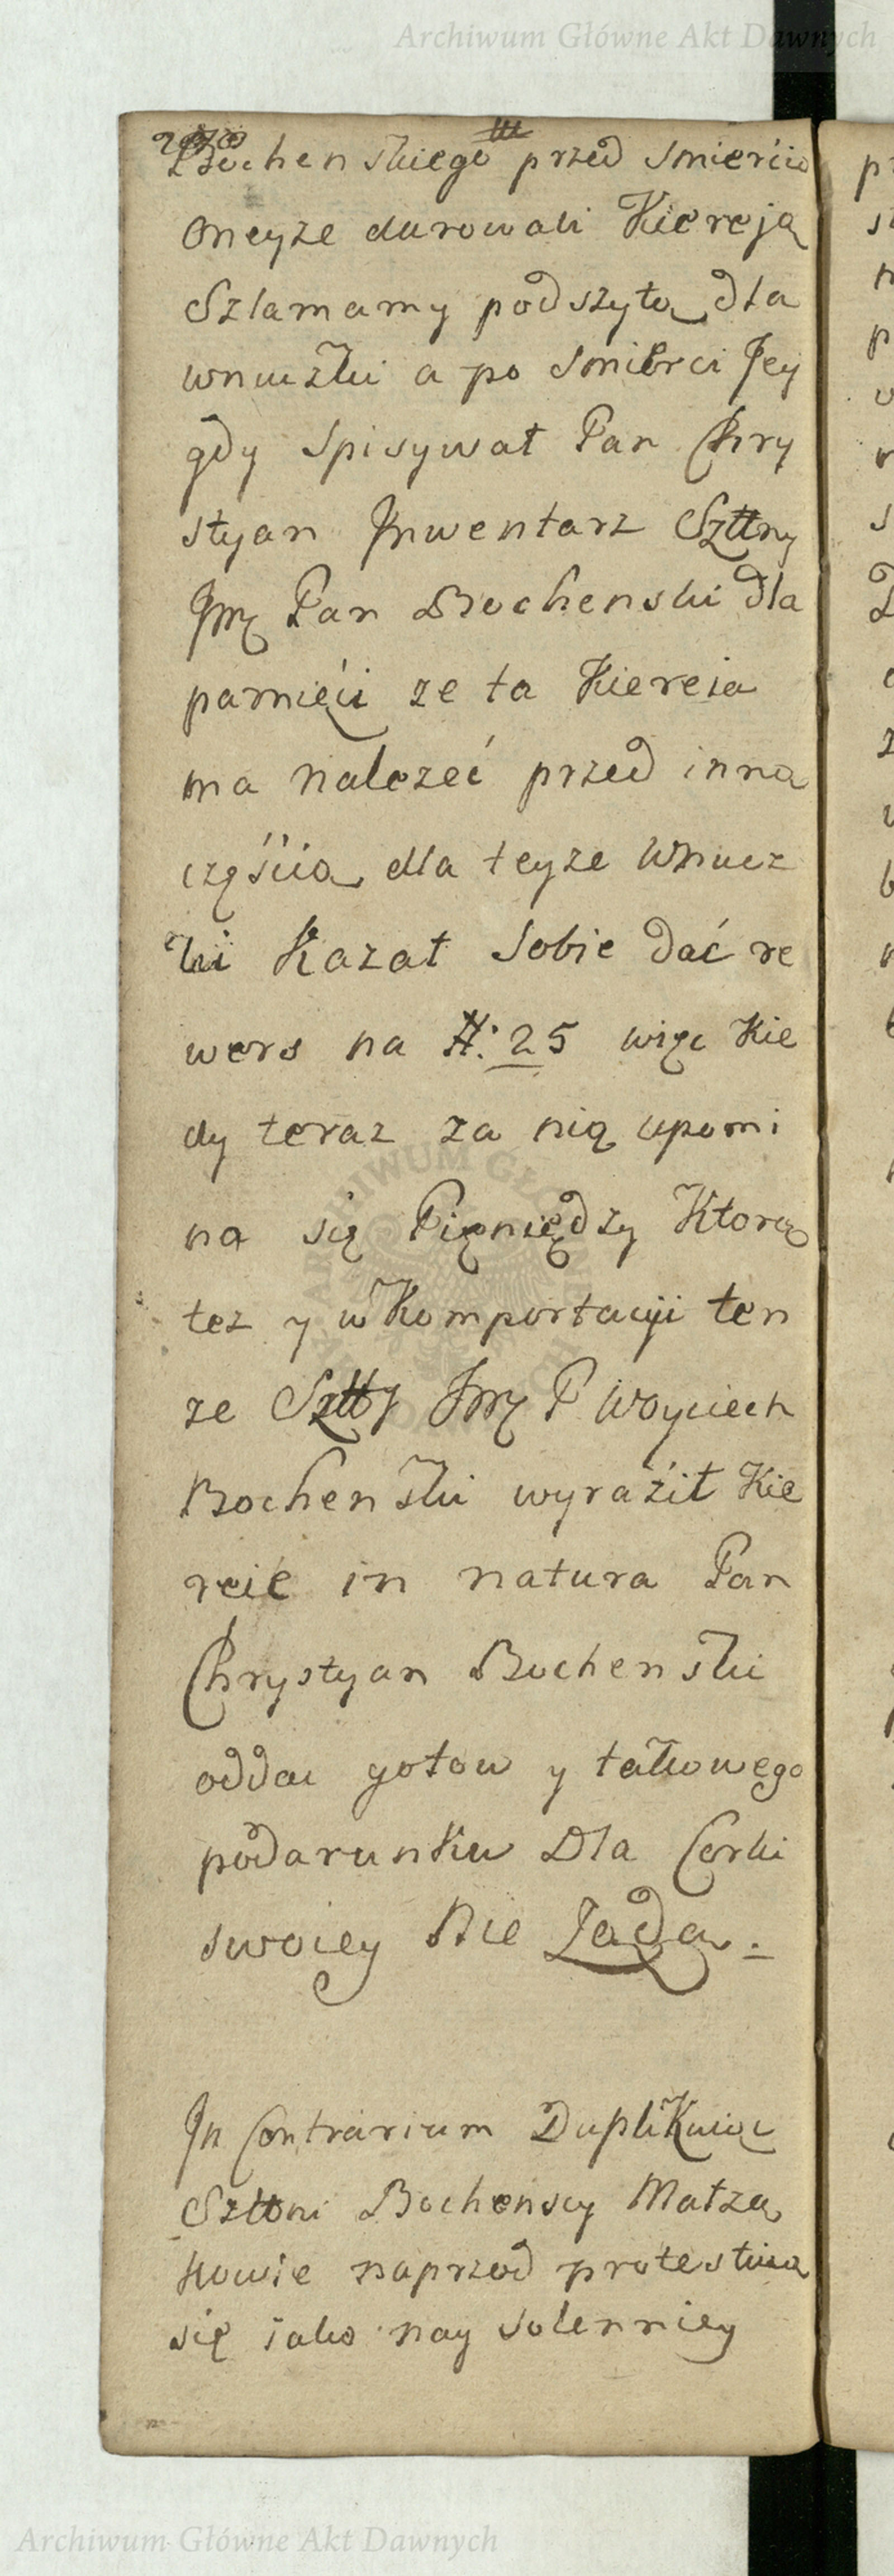 Archiwum Główne Akt Dawnych
Bochenskiego przed smiercią
oneyze darowali Kiereją
Szlamamy podszytą dla
wnuczki a po smierci Jey
gdy spisywał Pan Chry
styan Jnwentarz Szttny
Jmę Pan Bochenski dla
pamięći ze ta Kiereia
ma nalezeć przed inną
częśćią dla teyze Wnucz
ki Kazał Sobie dać re
wers na #: 25 więc Kie
dy teraz za nię upomi
na się Pięniędzy Ktorą
tez y w Komportacyji ten
ze Sztty Jmę P Woyciech
Bochenski wyraźił Kie
reie in natura Pan
Chrystyan Bochenski
oddac gotow y takowego
podarunku Dla Corki
swoiey Nie Ząda.
Jn Contrarium Duplikuiąc
Szttni Bochenscy Małzą
kowie naprzod protestuią
się iako nay solenniey
Archiwum Główne Akt Dawnych